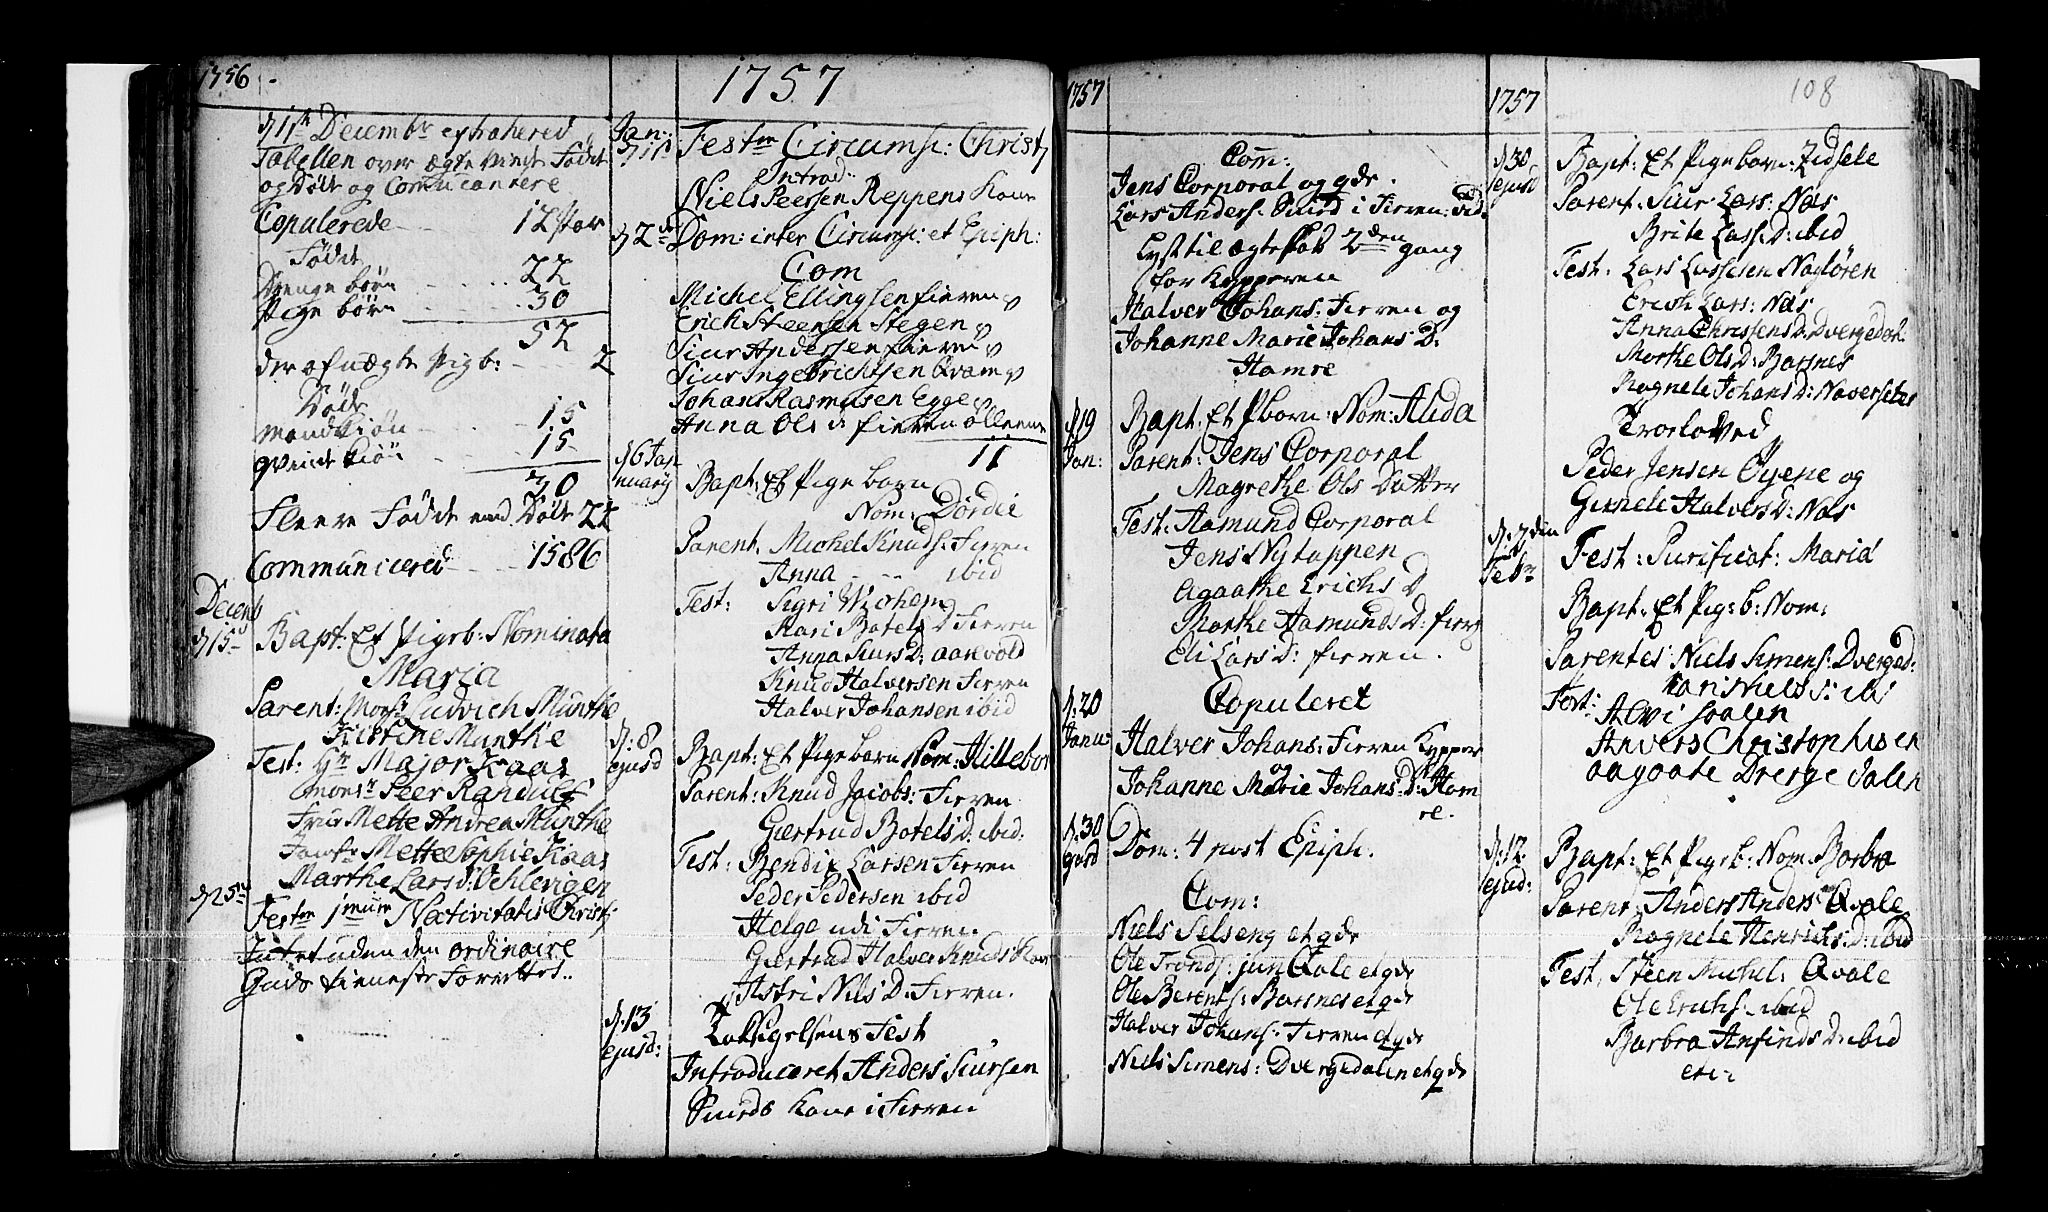 1756
d 11te Decembr extrahered
Tabellen over ægte viede Fødte
og Døde og Comunicantere
Copulerede 12 par
Fødte
Drenge børn 22
Pige børn 30
52
der af uægte Pigb: 2
Døde
Mandkiøn 15
qvindekiøn 15
30
Fleere Fødde end Døde 22
Communicered 1586
Decemb
d 15
Bapt: Et Pigeb: Nominata
Maria
Parent: Monsr Ludvich Munthe
Kirstine Munthe
Test: Hr Major Kaas
Monsr Peer Randulf
Frue Mette Andrea Munthe
Mette Sophie Kaas
Marthe Lars D:
d 25
Festm 1mum Nativitatis Christi
Intet uden den ordinaire
Guds tieneste Forrettet..
1757
Jan:
d 1
Festm Circumsc: Christi
Introd:
Niels Peersen Reppens Kone
d 2de Dom: inter Circumsc: et Epiph:
Com
Michel Ellingsen Fieren
Erich Steensen Stegen
Siur Andersen Fieren
Siur Ingebrichtsen Qvam
Johans Rasmusen Egge
Anna Ols d Fieren alleene
11
d 6 Jan
nuary
Bapt: Et Pige barn
Nom: Dordie
Parent. Michel Knuds: Fieren
Anna ibid
Test: Sigri Wichem
Kari Botels D Fieren
Anna Siurs D: Aarevold
Knud Halversen Fieren
Halver Johansen ibid
d: 8
ejusd
Bapt: Et Pige barn Nom: Hillebor
Parent: Knud Jacobs: Fieren
Giertrud Botels D. ibid:
Test: Bendix Larsen Fieren
Peder Pedersen ibid
Helge udi Fieren
Giertrud Halver Knuds Kone
Astri Niels D. Fieren.
d: 13
ejusd:
Taksigelsens Fest
Introduceret Anders Siursen
Smeds Kone i Fieren
1757
Com:
Jens Corporal og qde.
Lars Anders: Smed i Fieren:
Lyst til ægteskab 2den gang
for Kypperen
Halver Johans: Fieren og
Johanne Marie Johans D:
Hamre
d 19
Jan:
Bapt: Et P barn: Nom: Alida
Parent: Jens Corporal
Magrethe Ols Datter
Test: Aamund Corporal
Jens Nytappen
Agaathe Erichs D
Marthe Aamunds D: Fier
Eli Lars D: Fieren.
d: 20
Janu
Copuleret
Halver Johans: Fieren Kypper
og
Johanne Marie Johans: D: Ham
re.
d: 30
ejusd
Dom: 4 post Epiph.
Com:
Niels Selseng et qde
Ole Tronds: jun Qvale et qde
Ole Berents: Barsnes et qde
Halver Johans: Fieren et qde
Niels Simens: Dvergedalen et qde
1757
108
d: 30
ejusd
Bapt: Et Pige barn: Zidsele
Parent. Siur Lars: Næs
Brite Lass: D: ibid
Test: Lars Lassesen Nagløren
Erich Lars: Næs
Anna Chrissens D. Dvergedal
Marthe Ols D: Barsnes
Ragnele Johans D: Naversetes
Trorloved
Peder Jensen Øyene og
Gunele Halvers D: Næs
d: 2den
Febr
Fest: Purificat: Maria
Bapt: Et Pigeb: Nom:
Parentes Niels Simens: Dverged:
Kari Niels D: ibid
Test:
Anvers Christophersen
Aagaate Dvergedalen
d: 12
ejusd:
Bapt: Et Pigeb: Nom. Barbra
Parent. Anders Anders: Qvale
Ragnele Henrichs: D: ibid
Test. Steen Michel: Qvale
Ole Erichs. ibid
Barbra Anfinds D: ibid
etc.